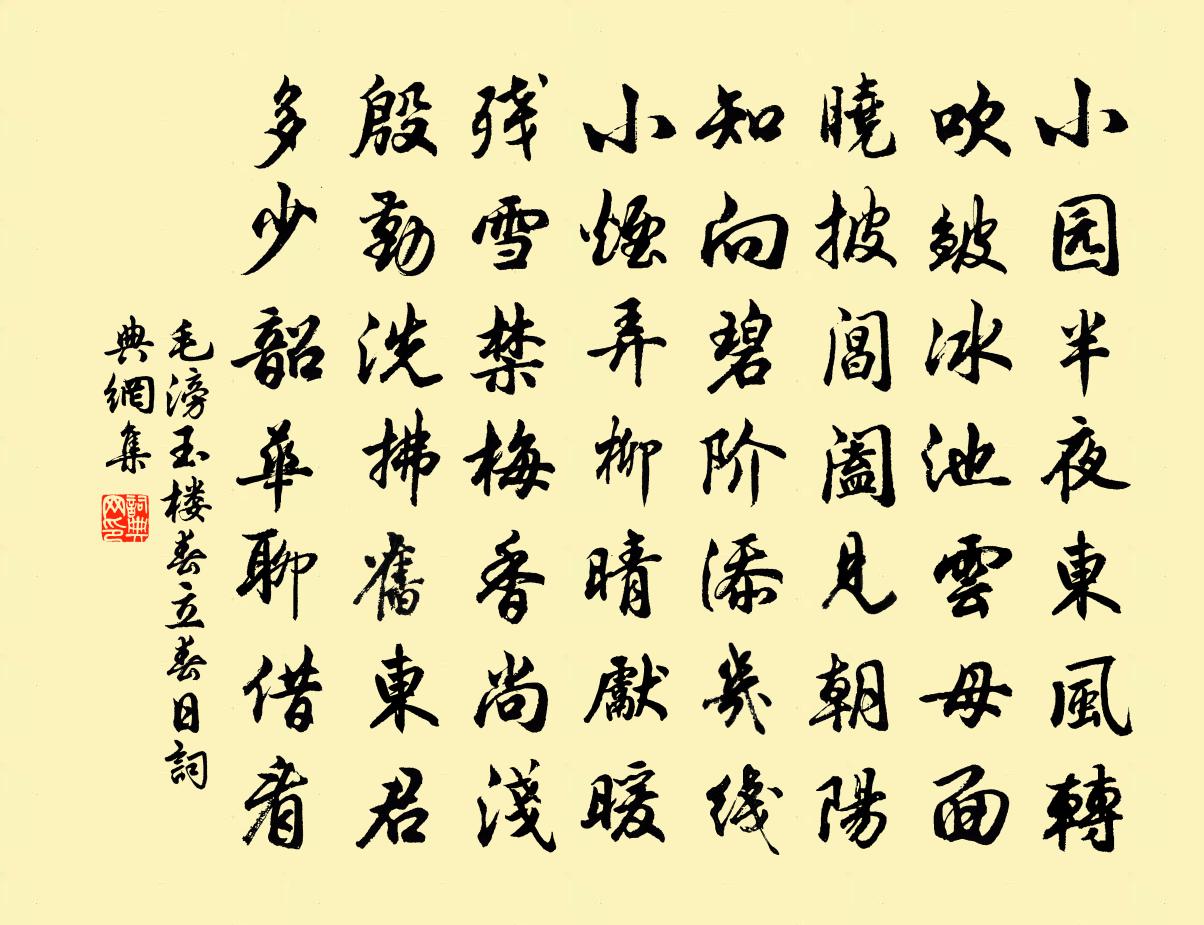 小园半夜東風轉
吹皴冰池雲母面
曉披閶闔見朝陽
知向碧阶添幾线
小煙弄柳晴獻暖
残雪禁梅香尚淺
殷勤洗拂舊東君
多少韶華聊借看
毛滂玉楼春立春日詞
典網集
詞典網印